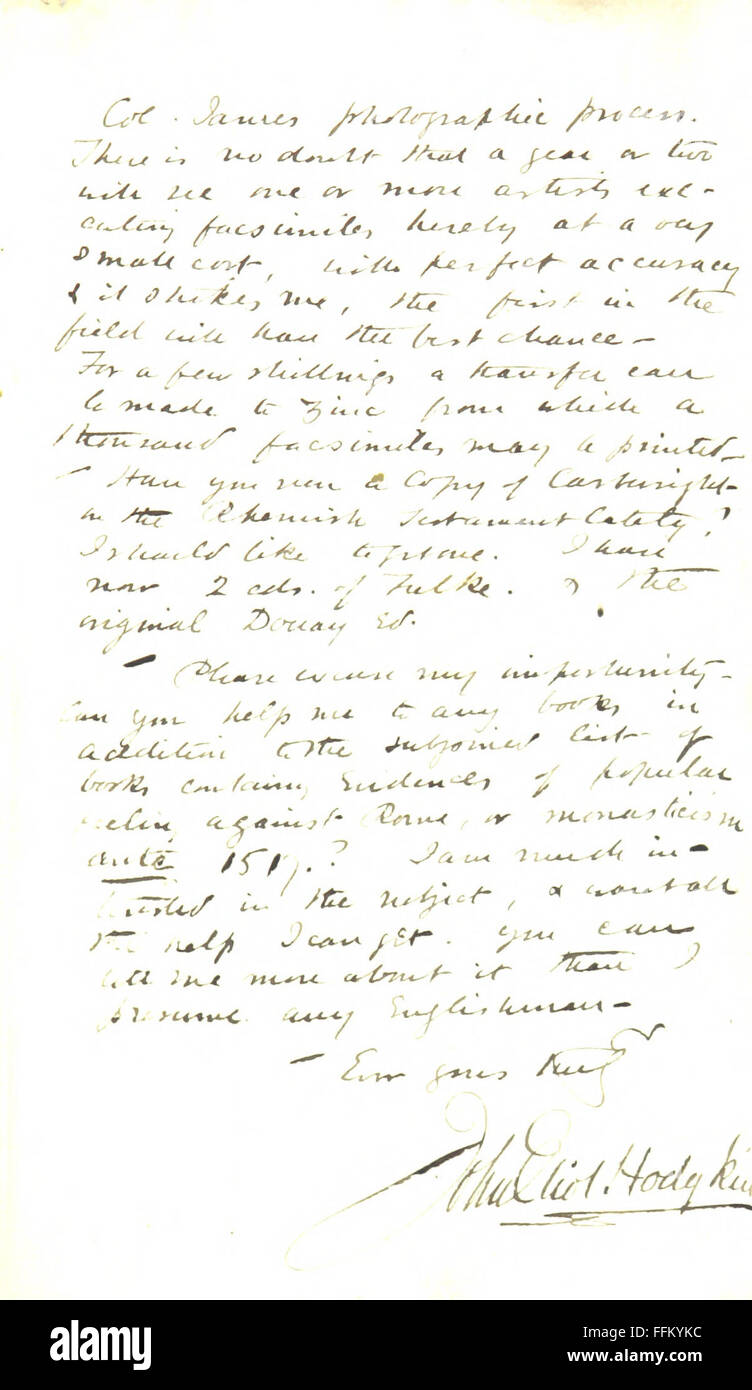 Col. James photographic process.
There is no doubt that a year or two
will see one or more artists exe-
cuting facsimiles hereby at a very
small cost, with perfect accuracy
& it strikes me, the first in the
field will have the best chance -
For a few shillings a transfer can
be made to zinc from which a
thousand facsimiles may be printed -
- Have you seen a Copy of Cartwright
on the Rhemish Testament lately?
I should like a one. I have
now 2 eds. of Fulke. & the
original Douay Ed.
- Please excuse my importunity -
Can you help me to any books in
addition to the subjoined list of
books containing Evidences of popular
feeling against Rome, or monasticism
ante 1517.? I am much in-
terested in the subject, & want all
the help I can get. you can
tell me more about it than I
presume any Englishman -
- Ever yours truly
John Eliot Hodgkin
alamy
Image ID: FFKYKC
www.alamy.com